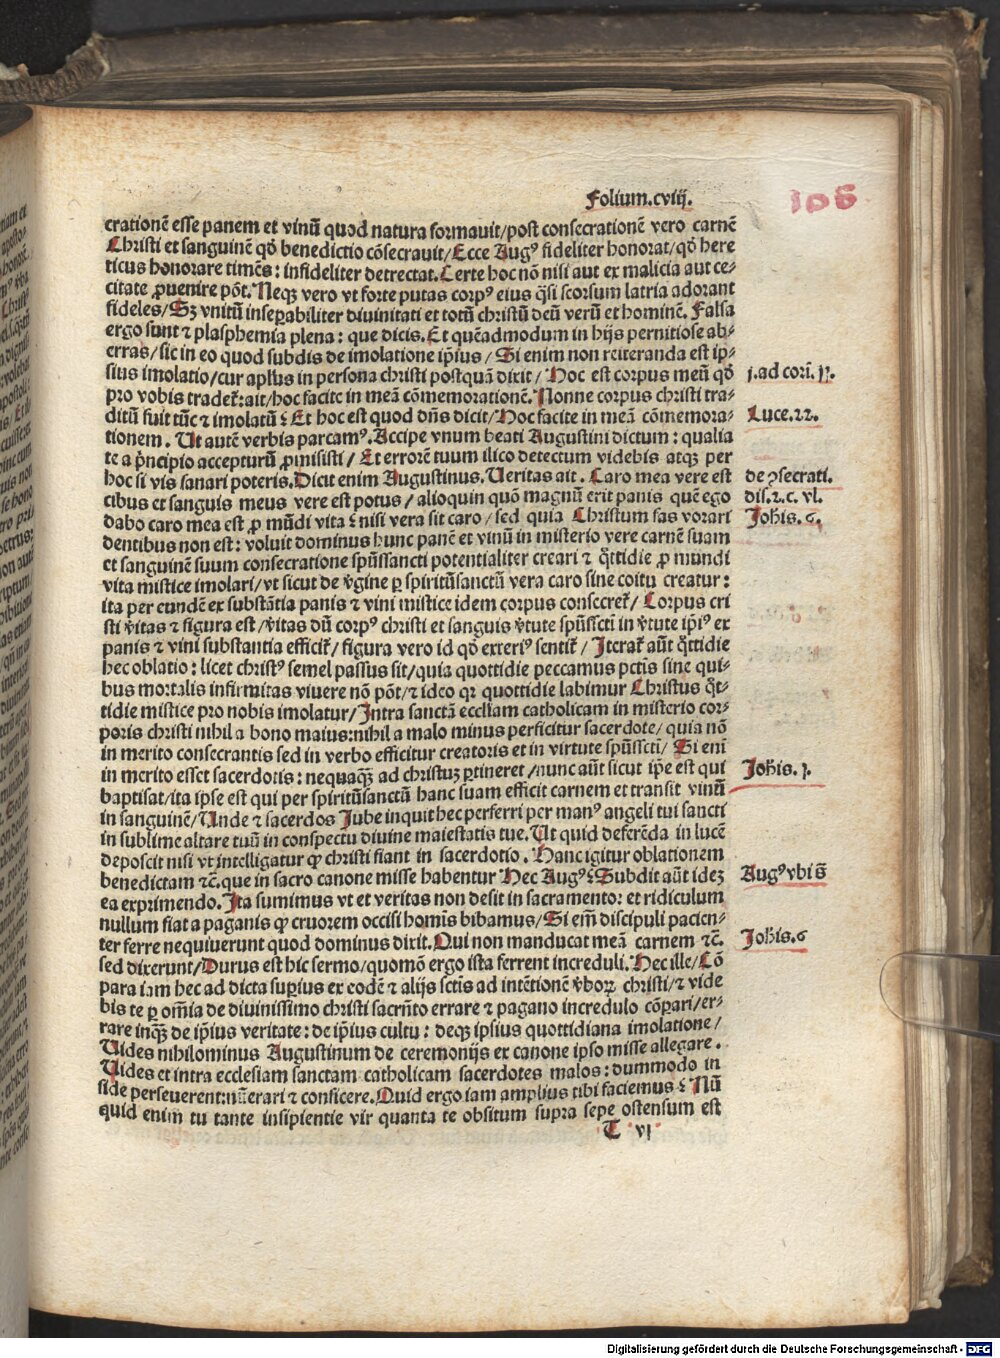 Folium.cviij.
106
crationē esse panem et vinū quod natura formauit/post consecrationē vero carnē
Christi et sanguinē qđ benedictio cōsecrauit/Ecce Augꝰ fideliter honorat/qđ here
ticus honorare timēs: infideliter detrectat. Certe hoc nō nisi aut ex malicia aut ce⸗
citate ꝓuenire pōt. Neqꝫ vero vt forte putas corpꝰ eius q̄si scorsum latria adorant
fideles/Sꝫ vnitū insepabiliter diuinitati et totū christū deū verū et hominē. Falsa
ergo sunt ⁊ plasphemia plena: que dicis. Et quēadmodum in hijs pernitiose ab⸗
erras/sic in eo quod subdis de imolatione ipīus/Si enim non reiteranda est ip⸗
sius imolatio/cur apłus in persona christi postquā dixit/Hoc est corpus meū qđ
pro vobis tradeť:ait/hoc facite in meā cōmemorationē. Nonne corpus christi tra⸗
ditū fuit tūc ⁊ imolatū? Et hoc est quod dn̄s dicit/Hoc facite in meā cōmemora⸗
tionem. Ut autē verbis parcamꝰ. Accipe vnum beati Augustini dictum: qualia
te a p̄ncipio accepturū ꝓmisisti/Et errorē tuum ilico detectum videbis atqꝫ per
hoc si vis sanari poteris. Dicit enim Augustinus. Ueritas ait. Caro mea vere est
cibus et sanguis meus vere est potus/alioquin quō magnū erit panis quē ego
dabo caro mea est ꝓ mūdi vita? nisi vera sit caro/sed quia Christum fas vorari
dentibus non est: voluit dominus hunc panē et vinū in misterio vere carnē suam
et sanguinē suum consecratione spūssancti potentialiter creari ⁊ q̊ttidie ꝓ mundi
vita mistice imolari/vt sicut de v̓gine ꝑ spiritūsanctū vera caro sine coitu creatur:
ita per eundē ex substātia panis ⁊ vini mistice idem corpus consecreť/Corpus cri
sti v̓itas ⁊ figura est/v̓itas dū corpꝰ christi et sanguis v̓tute spūsscti in v̓tute ipīꝰ ex
panis ⁊ vini substantia efficiť/figura vero id qđ exteriꝰ sentiť/Iterať aūt q̊ttidie
hec oblatio: licet christꝰ semel passus sit/quia quottidie peccamus pctīs sine qui⸗
bus mortalis infirmitas viuere nō pōt/⁊ ideo qꝛ quottidie labimur Christus q̊t⸗
tidie mistice pro nobis imolatur/Intra sanctā eccliam catholicam in misterio cor⸗
poris christi nihil a bono maius:nihil a malo minus perficitur sacerdote/quia nō
in merito consecrantis sed in verbo efficitur creatoris et in virtute spūsscti/Si eni
in merito esset sacerdotis: nequaqꝫ ad christuꝫ ꝑtineret/nunc aūt sicut ipe est qui
baptisat/ita ipse est qui per spiritūsanctū hanc suam efficit carnem et transit vinū
in sanguinē/Unde ⁊ sacerdos Jube inquit hec perferri per manꝰ angeli tui sancti
in sublime altare tuū in conspectu diuine maiestatis tue. Ut quid deferēda in lucē
deposcit nisi vt intelligatur ꝙ christi fiant in sacerdotio. Hanc igitur oblationem
benedictam ⁊c̄.que in sacro canone misse habentur Hec Augꝰ? Subdit aūt ideꝫ
ea exprimendo. Ita sumimus vt et veritas non desit in sacramento: et ridiculum
nullum fiat a paganis ꝙ cruorem occisi homīs bibamus/Si eni discipuli pacien⸗
ter ferre nequiuerunt quod dominus dixit. Qui non manducat meā carnem ⁊c̄.
sed dixerunt/Durus est hic sermo/quomō ergo ista ferrent increduli. Hec ille/Cō
para iam hec ad dicta supius ex eodē ⁊ alijs sctis ad intētionē v̓boꝝ christi/⁊ vide
bis te ꝑ omīa de diuinissimo christi sacrn̄to errare ⁊ pagano incredulo cōpari/er⸗
rare inqꝫ de ipīus veritate: de ipīus cultu: deqꝫ ipsius quottidiana imolatione/
Uides nihilominus Augustinum de ceremonijs ex canone ipso misse allegare.
Uides et intra ecclesiam sanctam catholicam sacerdotes malos: dummodo in
fide perseuerent:nūerari ⁊ conficere. Quid ergo iam amplius tibi faciemus? Nū
quid enim tu tante insipientie vir quanta te obsitum supra sepe ostensum est
T vj
j.ad cori. xj.
Luce.22.
de ꝯsecrati.
dis.2.c. vt.
Johis.6.
Johis. j.
Augꝰ vbi s̄
Johis.6
Digitalisierung gefördert durch die Deutsche Forschungsgemeinschaft - DFG